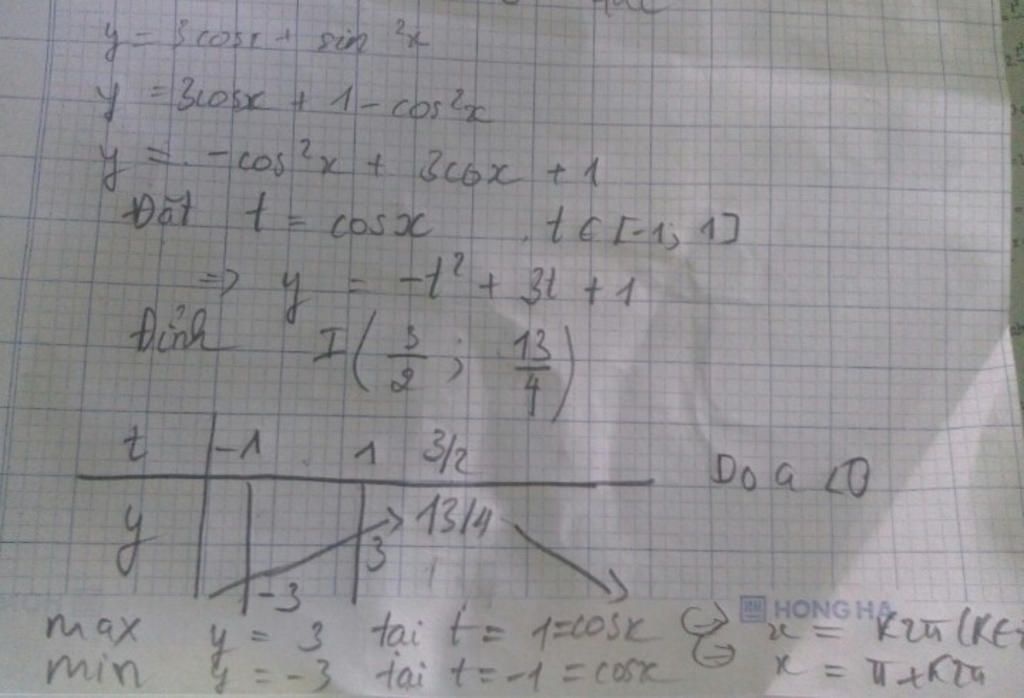 y = 3cosx + sin²x
y = 3cosx + 1 - cos²x
y = -cos²x + 3cosx + 1
Đặt t = cosx t ∈ [-1; 1]
=> y = -t² + 3t + 1
Đỉnh I(3/2; 13/4)
t -1 1 3/2 Do a <0
y -3 3 13/4
HONG HA
max y = 3 tại t = 1 = cosx <=> x = k2π (k∈
min y = -3 tại t = -1 = cosx <=> x = π + k2π